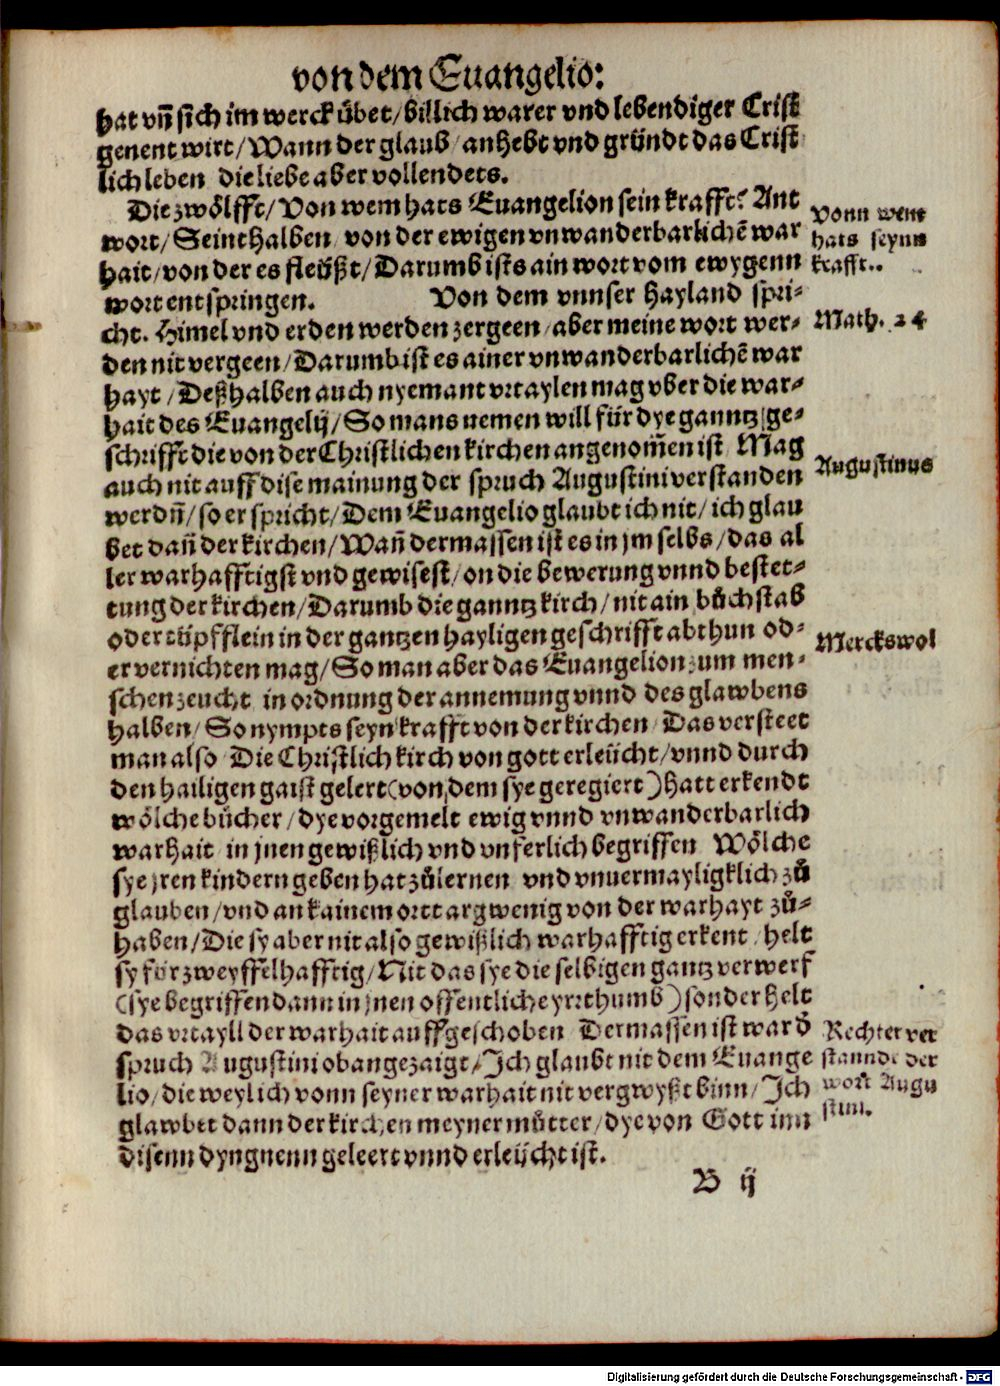 von dem Euangelio:
hat vñ sich im werck übet/billich warer vnd lebendiger Crist
genent wirt/Wann der glaub/anhebt vnd gründt das Crist
lich leben die liebe aber vollendets.
Die zwölfft/Von wem hats Euangelion sein krafft? Ant
wort/Seinthalben von der ewigen vnwanderbarlichē war
hait/von der es fleüßt/Darumb ists ain wort vom ewygenn
wort entspringen. Von dem vnnser Hayland spri-
cht. Himel vnd erden werden zergeen/aber meine wort wer-
den nit vergeen/Darumb ist es ainer vnwanderbarlichē war
hayt/Deßhalben auch nyemant vrtaylen mag vber die war-
hait des Euangelij/So mans nemen will für dye ganntz ge-
schrifft die von der Christlichen kirchen angenom̄en ist Mag
auch nit auff dise mainung der spruch Augustini verstanden
werdn̄/so er spricht/Dem Euangelio glaubt ich nit/ich glau
bet dan̄ der kirchen/Wan̄ dermassen ist es in jm selbs/das al
ler warhafftigst vnd gewisest/on die bewerung vnnd bestet-
tung der kirchen/Darumb die ganntz kirch/nit ain bůchstab
oder tüpfflein in der gantzen hayligen geschrifft abthun od-
er vernichten mag/So man aber das Euangelion zum men-
schen zeucht in ordnung der annemung vnnd des glawbens
halben/So nympts seyn krafft von der kirchen/Das versteet
man also Die Christlich kirch von gott erleücht/vnnd durch
den hailigen gaist gelert(von dem sye geregiert)hatt erkendt
wölche bücher/dye vorgemelt ewig vnnd vnwanderbarlich
warhait in jnen gewißlich vnd vnferlich begriffen Wölche
sye jren kindern geben hat zůlernen vnd vnuermayligklich zů
glauben/vnd an kainem ortt argwenig von der warhayt zů-
haben/Die sy aber nit also gewißlich warhafftig erkent/helt
sy für zweyffelhafftig/Nit das sye die selbigen gantz verwerf
(sye begriffen dann in jnen offentliche yrrthumb)sonder helt
das vrtayll der warhait auffgeschoben Dermassen ist war d̄
spruch Augustini obangezaigt/Ich glaubt nit dem Euange
lio/die weyl ich vonn seyner warhait nit vergwyßt binn/Ich
glawbet dann der kirchen meyner můtter/dye von Gott inn
disenn dyngnenn geleert vnnd erleücht ist.
B ij
Vonn wem
hats seynn
krafft..
Math. 24
Augustinus
Merckswol
Rechter ver
stannde der
wort Augu
stini.
Digitalisierung gefördert durch die Deutsche Forschungsgemeinschaft - DFG